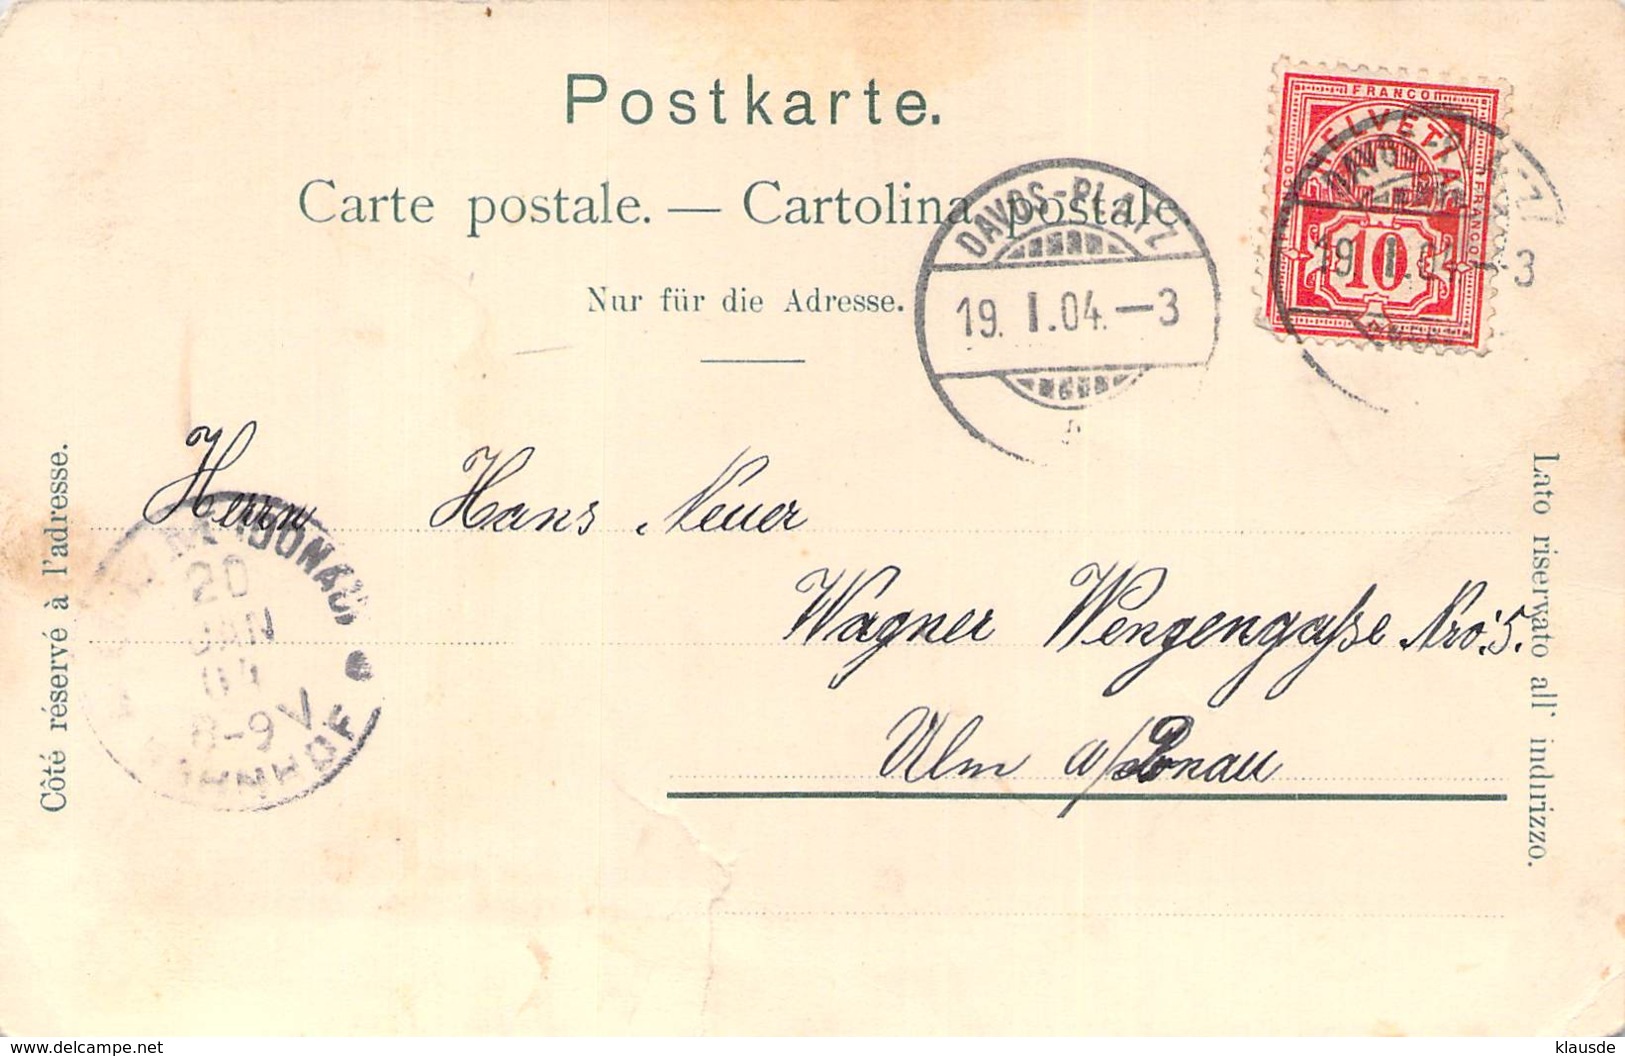 Postkarte.
Carte postale. — Cartolina postale
Nur für die Adresse.
DAVOS-PLATZ
19. I.04.-3
FRANCO
HELVETIA
FRANCO
10
19. I.04-3
Côté réservé à l'adresse.
Lato riservato all' indirizzo.
Herrn Hans Neuer
Wagner Wengengaße Nro: 5.
Ulm a/Donau
20
JAN
04
8-9 V
BAHNHOF
www.delcampe.net
klausde